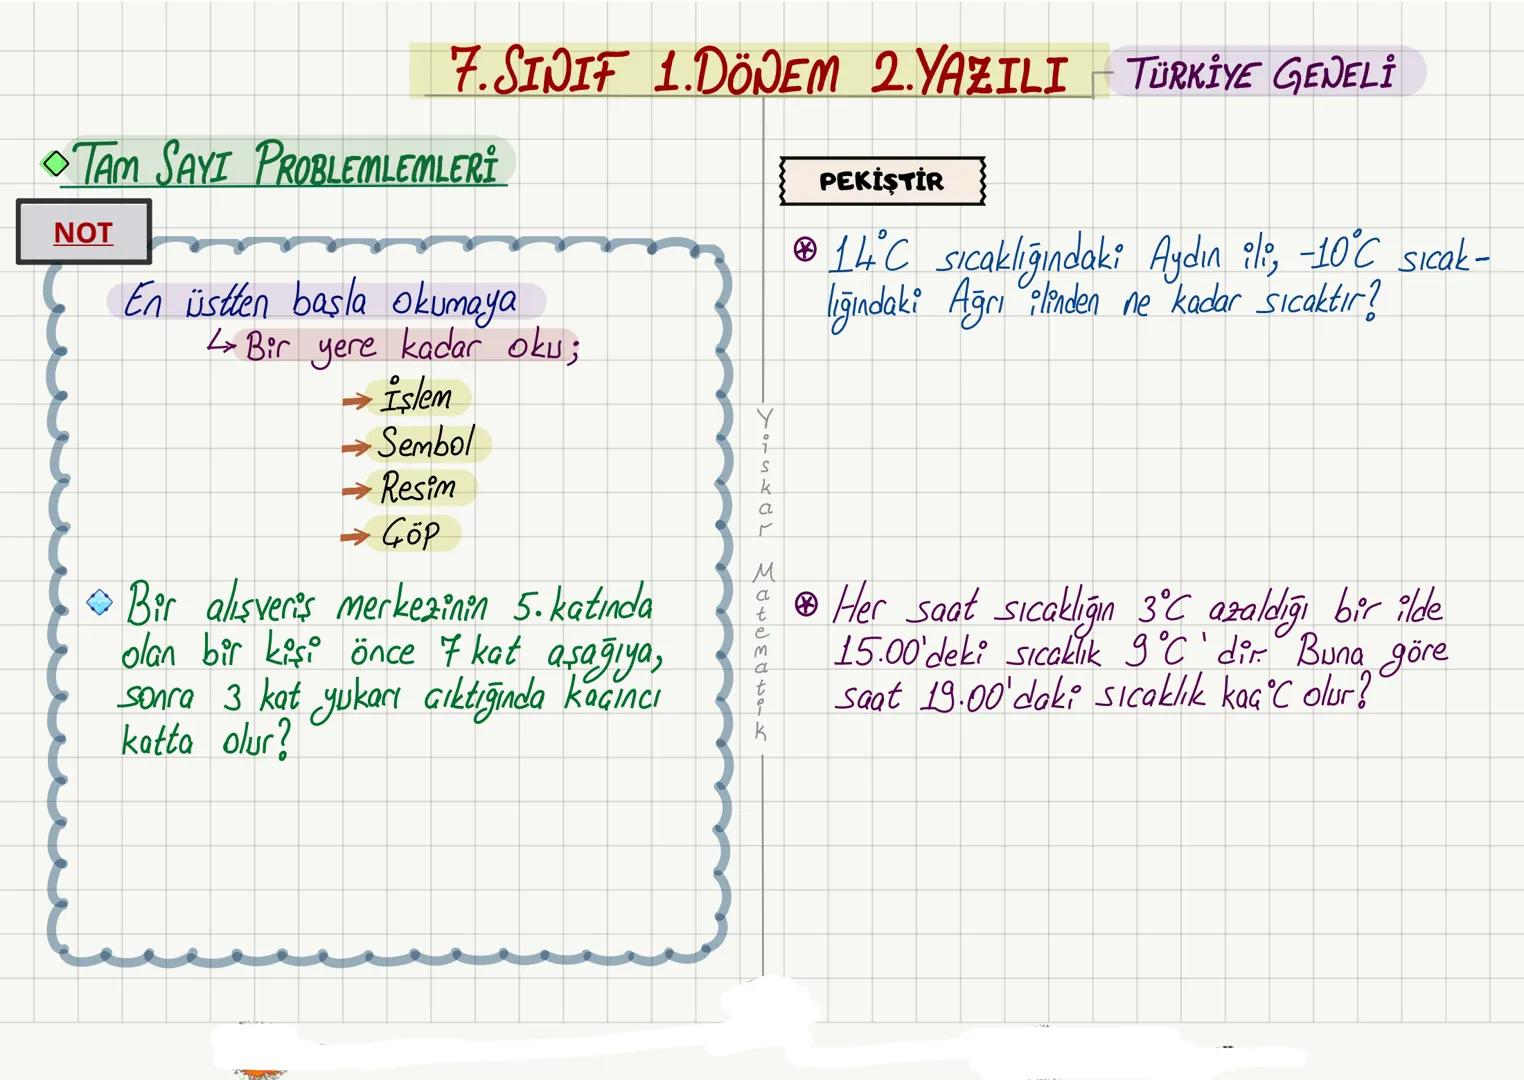 7.SINIF 1.DÖNEM 2.YAZILI TÜRKİYE GENELİ
TAM SAYI PROBLEMLEMLERİ
NOT
En üstten başla okumaya
Bir yere kadar oku;
İşlem
Sembol
Resim
Çöp
Bir alışveriş merkezinin 5.katında
olan bir kişi önce 7 kat aşağıya,
sonra 3 kat yukarı çıktığında kaçıncı
katta olur?
Yiskar Matematik
PEKİŞTİR
14°C sıcaklığındaki Aydın ili, -10°C sıcak-
lığındaki Ağrı ilinden ne kadar sıcaktır?
Her saat sıcaklığın 3°C azaldığı bir ilde
15.00'deki sıcaklık 9°C'dir. Buna göre
saat 19.00'daki sıcaklık kaç°C olur?